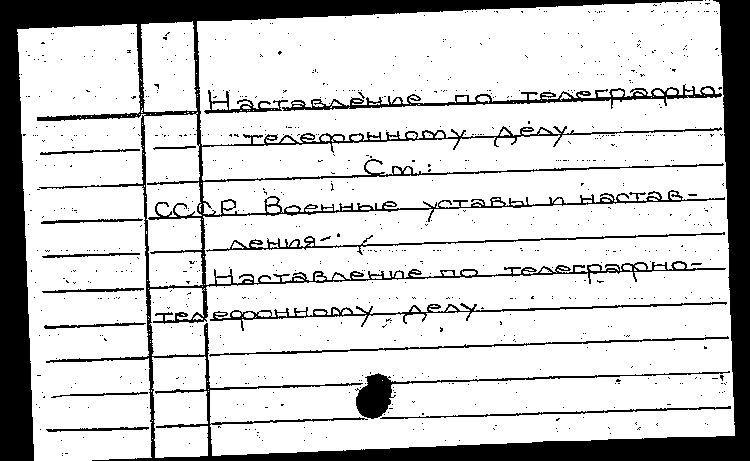 Наставление по телеграфно-
телефонному делу.
См.:
СССР. Военные уставы и настав-
ления.
Наставление по телеграфно-
телефонному делу.